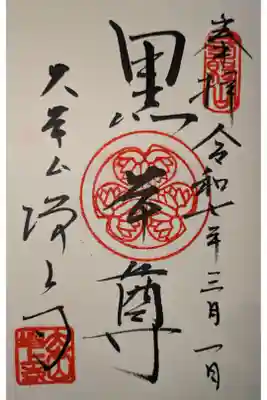 奉拝 令和七年三月一日
黒本尊
大本山増上寺